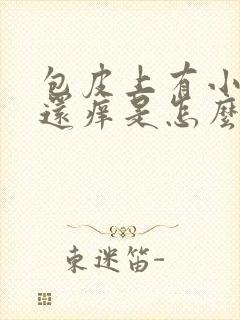 包皮上有小
還痒是怎麼
東迷笛-